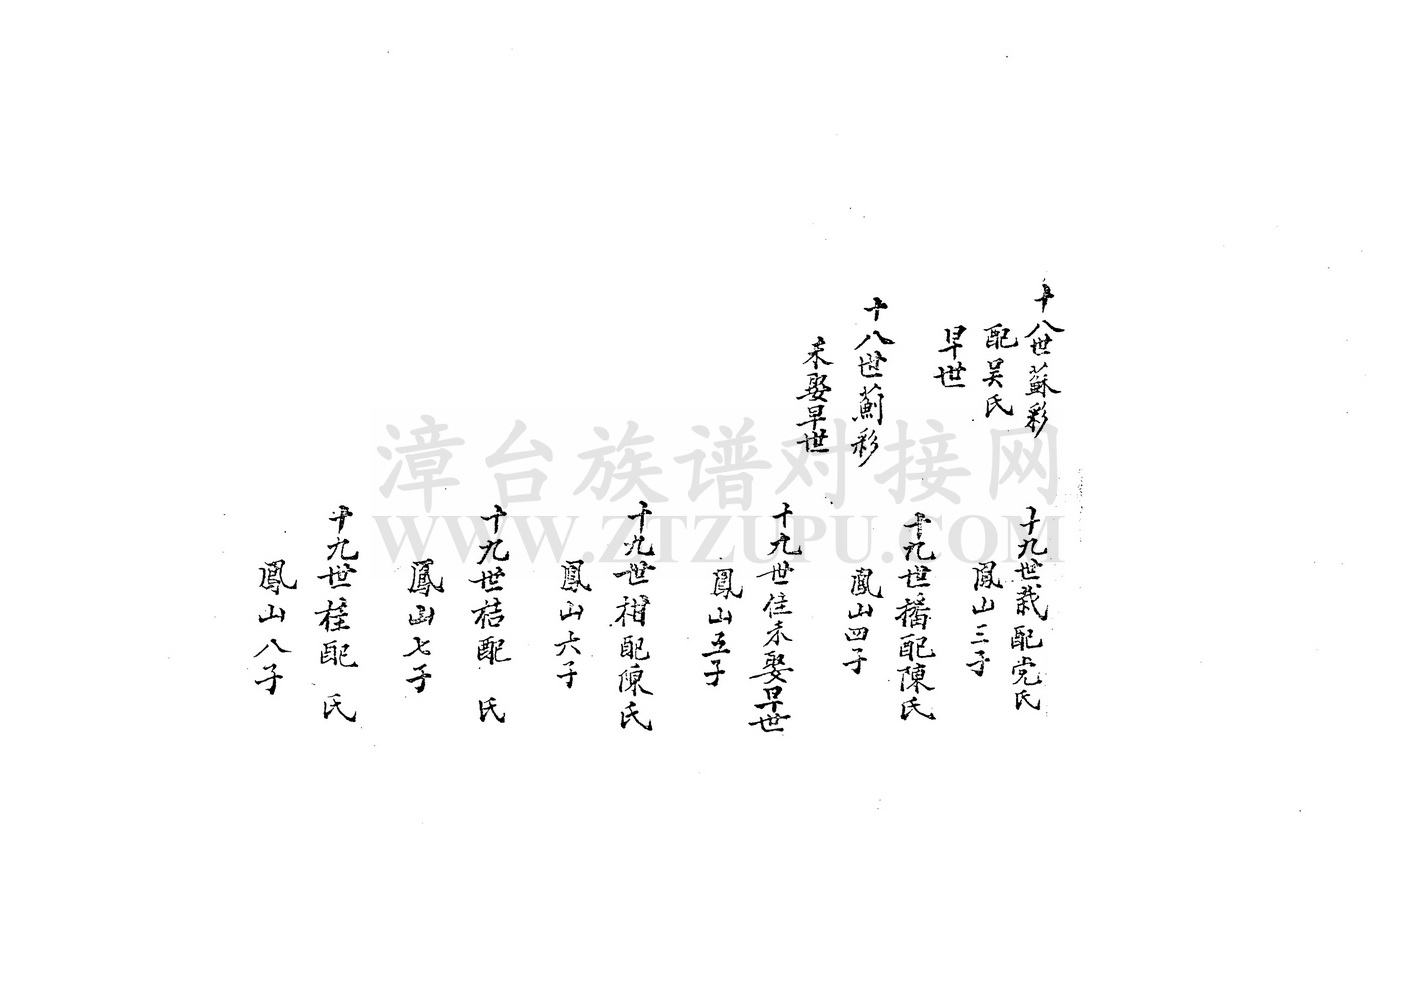 十八世蘇彩
配吴氏
早世
十八世薊彩
未娶早世
十九世栽配党氏
鳳山三子
十九世播配陳氏
鳳山四子
十九世佳未娶早世
鳳山五子
十九世柑配陳氏
鳳山六子
十九世桔配 氏
鳳山七子
十九世桂配 氏
鳳山八子
漳台族谱对接网
WWW.ZTZUPU.COM